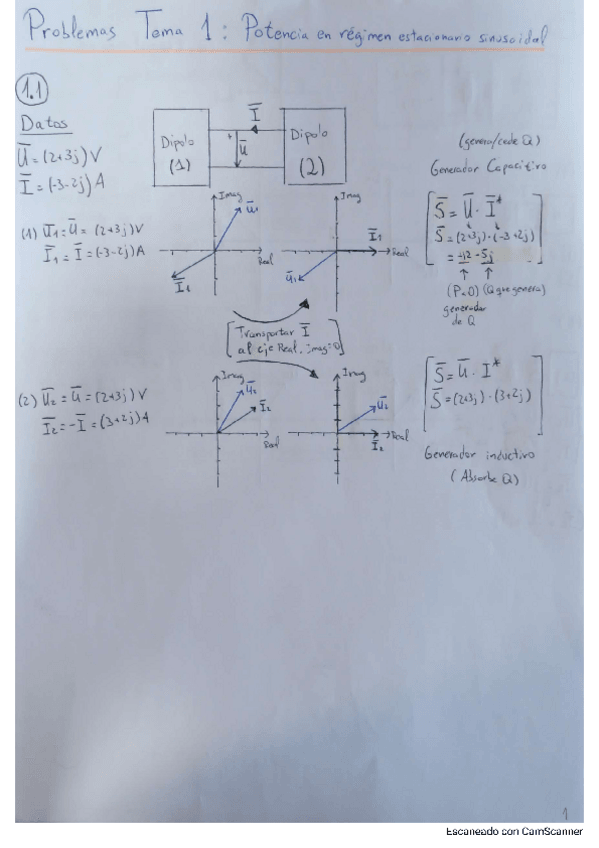 Problemas Tema 1: Potencia en régimen estacionario sinusoidal
1.1
Datos
U̅ = (2+3j) V
I̅ = (-3-2j) A
I̅
Dipolo
(1)
+
U̅
Dipolo
(2)
(genera/cede Q)
Generador Capacitivo
(1) U̅₁ = U̅ = (2+3j) V
I̅₁ = I̅ = (-3-2j) A
Imag
U̅₁
Real
I̅₁
Imag
I̅₁
Real
U̅₁
S̅ = U̅ · I̅*
S̅ = (2+3j) · (-3+2j)
= -12 - 5j
(P<0) (Q que genera)
generador
de Q
[Transportar I̅
al eje Real, Imag=0]
(2) U̅₂ = U̅ = (2+3j) V
I̅₂ = -I̅ = (3+2j) A
Imag
U̅₂
I̅₂
Real
Imag
U̅₂
Real
I̅₂
S̅ = U̅ · I*
S̅ = (2+3j) · (3+2j)
Generador inductivo
(Absorbe Q)
1
Escaneado con CamScanner